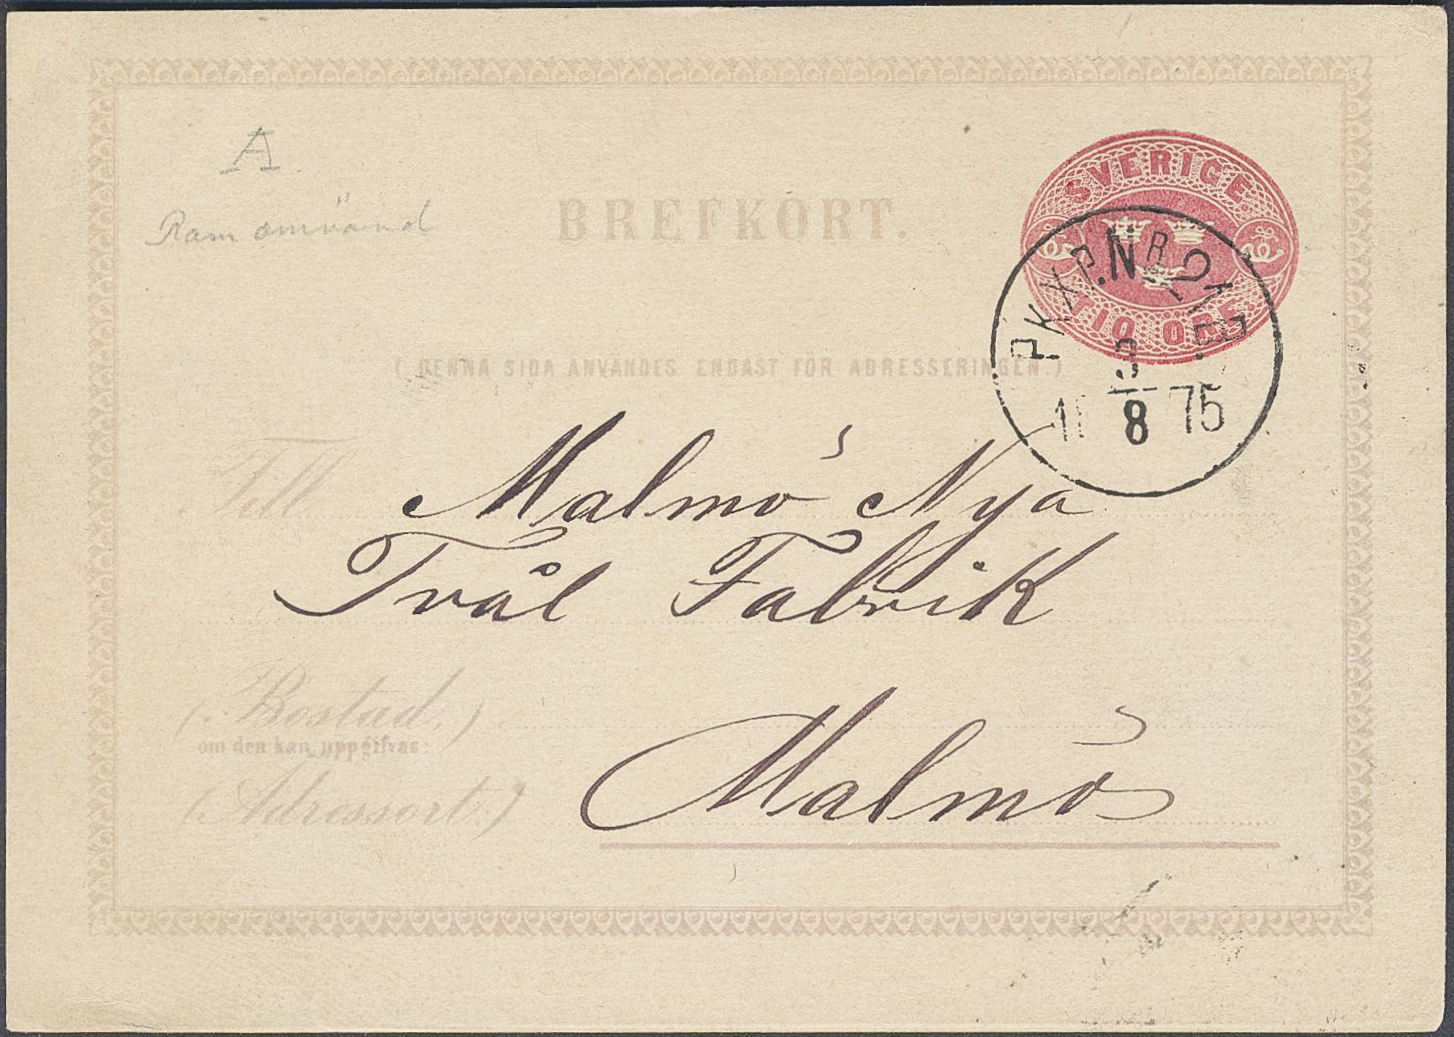 A
Ram omvänd
BREFKORT.
SVERIGE
TIO ÖRE
PKXP.NR 2
3
8 75
( DENNA SIDA ANVÄNDES ENDAST FÖR ADRESSERINGEN.)
Till Malmö Nya
Tvål Fabrik
(Bostad.)
om den kan uppgifvas:
(Adressort:) Malmö